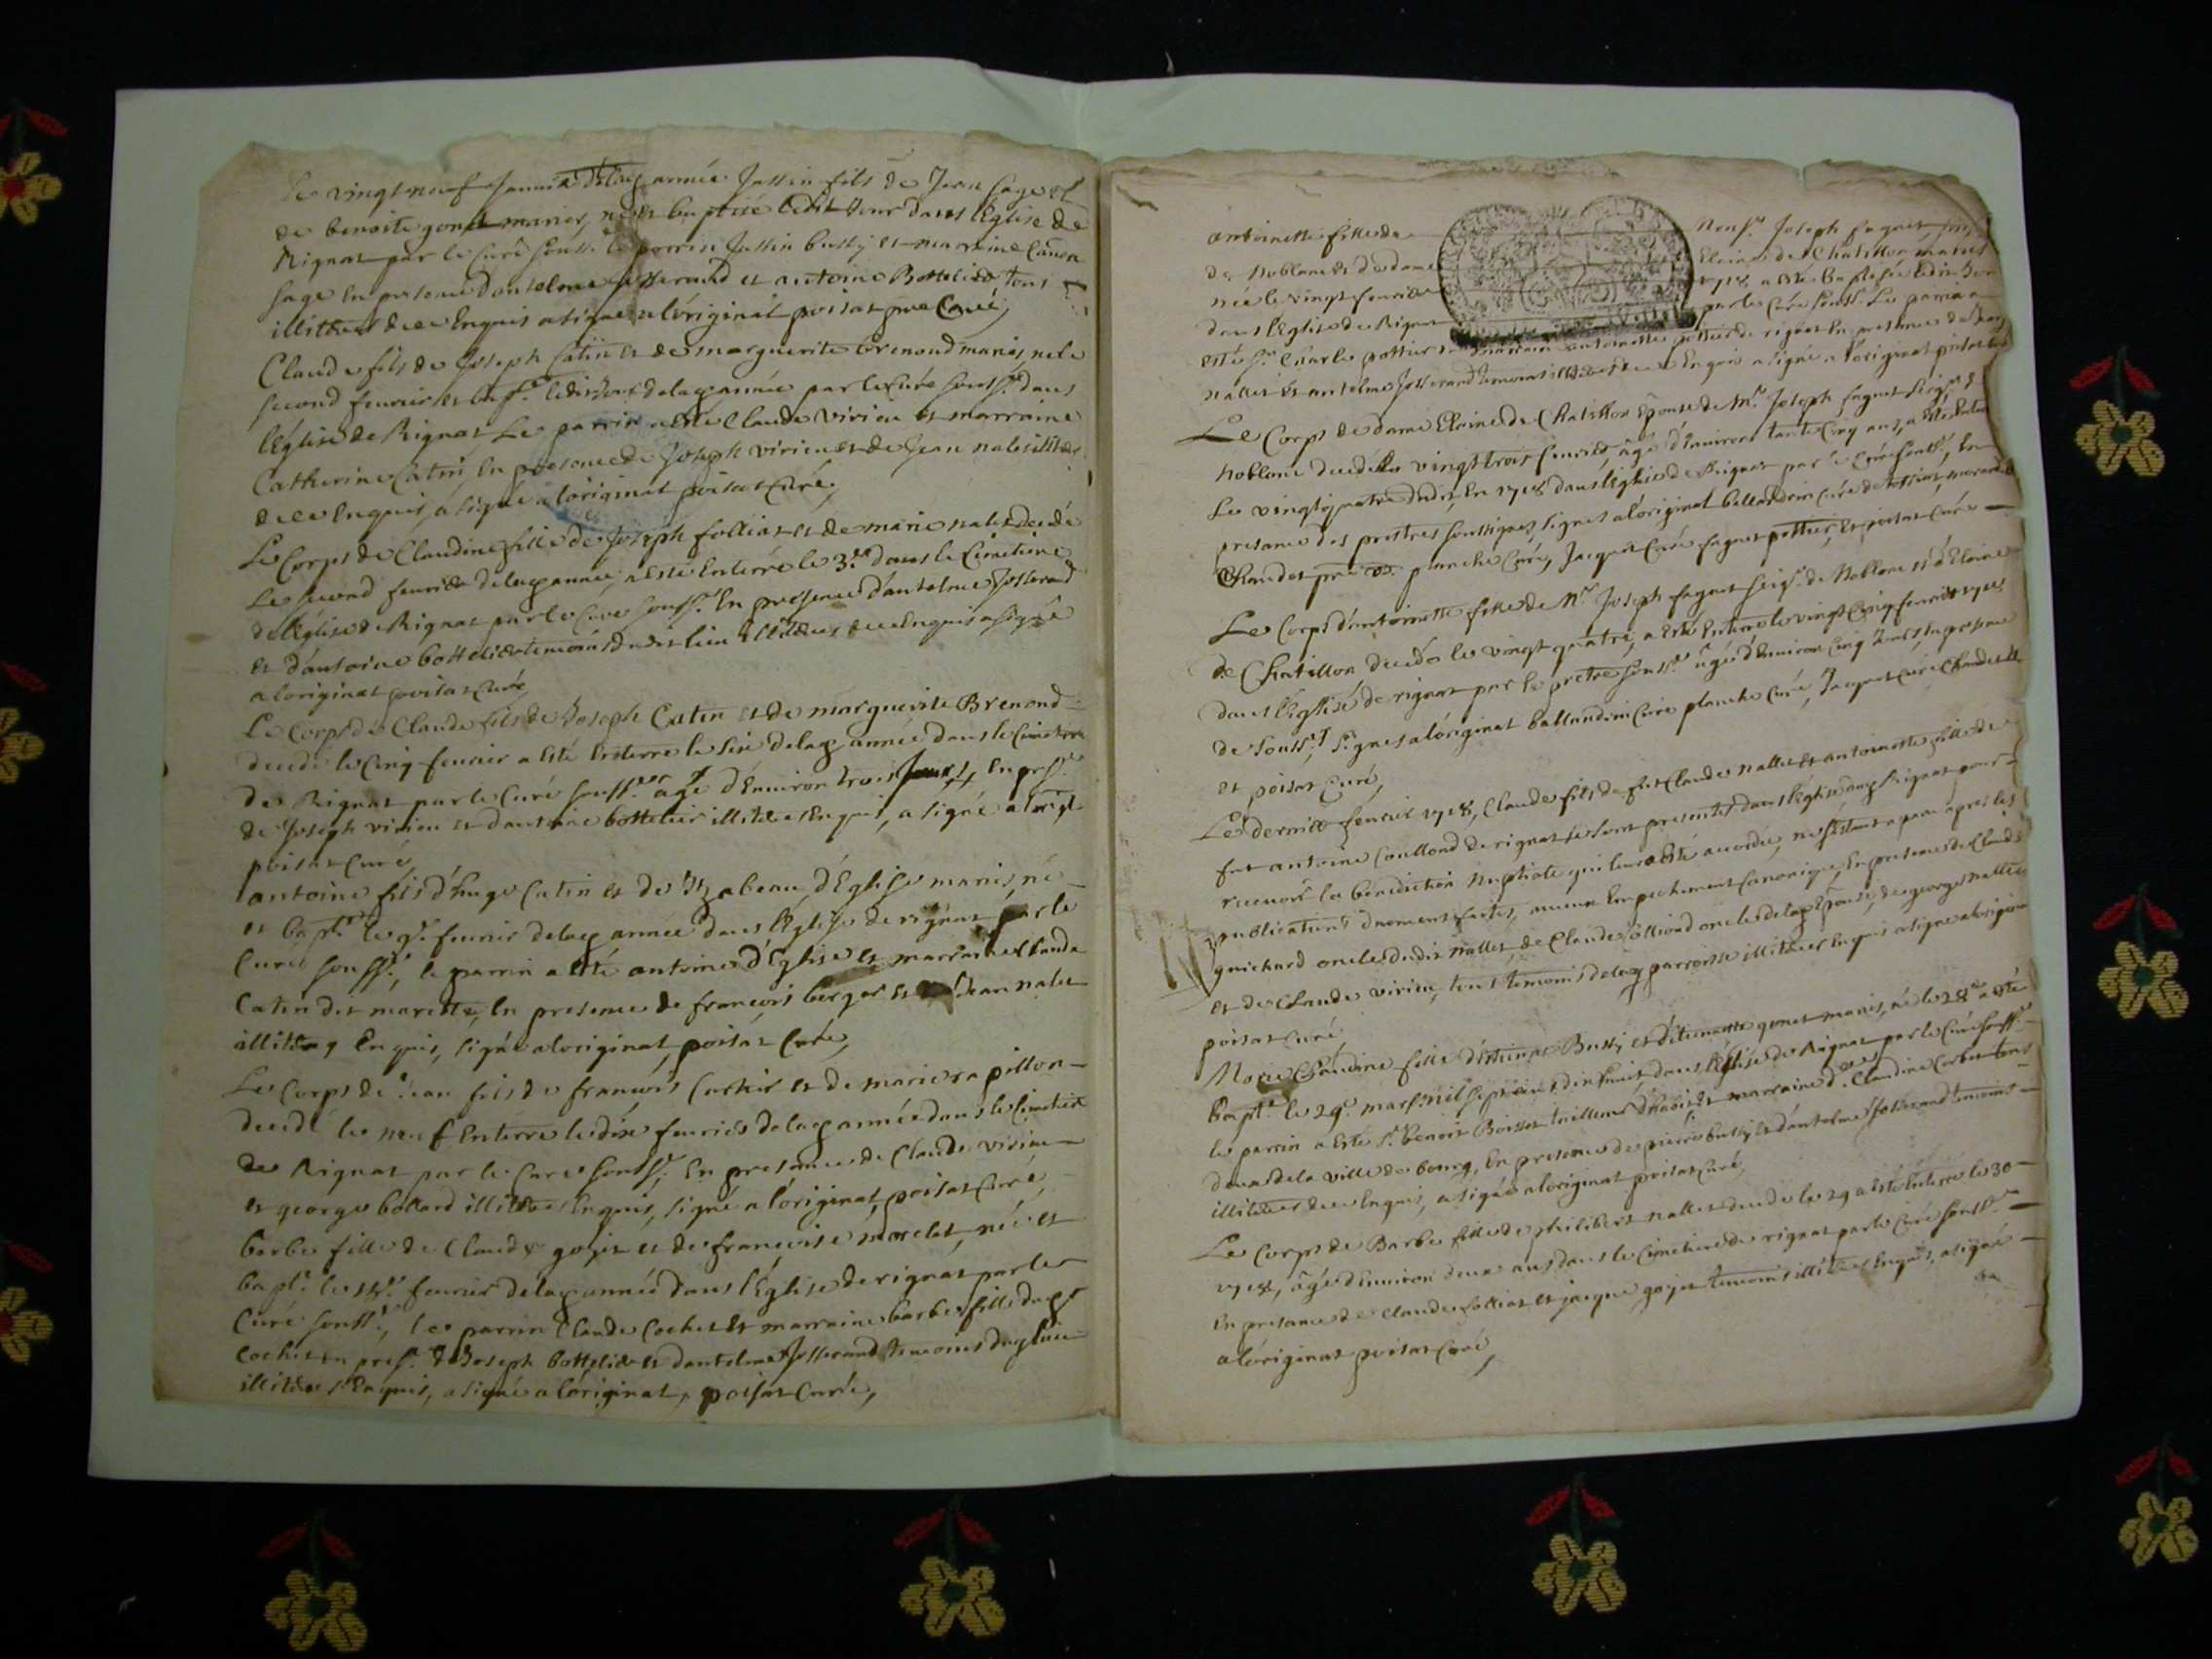 Le vingt neuf Janvier de lad année Justin fils de Jean sage et
de benoite gonet mariez, né et baptisé ledit Jour dans l'Eglise de
Rignat par le curé souss. le parrin Justin bussy et marraine
sage En presence danselme Josserand et antoine Bottelier, tous
illitérés de ce Enquis a signé a l'original poisat pre Curé,
Claude fils de Joseph Catin et de marguerite Brenond mariés, né le
second feurier et bap.e ledit Jour de lad année par le Curé souss.é dans
l'Eglise de Rignat Le parrin a esté Claude Virieu et marraine
Catherine Catin, En presence de Joseph virieu et de Jean nalet illit.es
de ce Enquis, a signé a l'original poisat Curé,
Le Corps de Claudine fille de Joseph folliat et de marie nalet decedé
Le second feurier de lad année, a esté Enterré le 3.e dans le Cimetiere
de l'Eglise de Rignat par le Curé souss.é En presence d'antelme Josserand
et d'antoine bottelier temoins dudit lieu Illiteres de ce Enquis a signé
a l'original poisat Curé,
Le Corps de Claude fils de Joseph Catin et de marguerite Brenond
decedé le Cinq feurier a esté Enterré le sixe de lad année dans le Cimetiere
de Rignat par le Curé souss.é agé d'Enuiron trois Jours, En pres.e
de Joseph virieu et dantoine bottelier illiteres Enquis, a signé a l'origl
poisat Curé,
antoine fils d'hugue Catin et de Izabeau d'Eglise mariés, né
et bapt.é le 9.e feurier de lad année dans l'Eglise de rignat par le
Curé souss.é, le parrin a esté antoine d'Eglise et marraine Clauda
Catin dit marette, En presence de françois berger et Jean nalet
illiterés Enquis, signé a l'original, poisat Curé,
Le Corps de Jean fils de françois Cochet et de marie rapillon
decedé le neuf Enterré le dixe feurier de lad année dans le Cimetiere
de Rignat par le Curé souss.é, En presence de Claude virieu
et george bollard illiterés Enquis, signé a l'original, poisat Curé,
barbe fille de Claude gojet et de françoise morelet, née et
bapt.é le feurier de lad année dans l'Eglise de rignat par le
Curé souss.é, le parrin Claude Cochet et marraine barbe fille dud
Cochet En pres.e de Joseph bottelier et dantelme Josserand temoins dud lieu
illiterés Enquis, a signé a l'original, poisat Curé,
antoinette fille de Mons.r Joseph faguet seig
de Noblens et de dame Elaine de Chatillon mariés
née le vingt feurier 1718, a esté Baptisée ledit Jour
dans l'Eglise de Rignat par le Curé souss. Le parrin a
esté S.r Charle pottier marraine antoinette pottier de rignat En presence de
nallet et antelme Josserand temoins illiteres de ce Enquis a signé a l'original poisat
Le Corps de dame Elaine de Chatillon Epouse de M.r Joseph faguet seig.r de
Noblens decedée le vingt trois feurier, agé d'Enuiron Cinq ans, a esté Enterré
Le vingt quatre dudit En 1718 dans l'Eglise de Rignat par le Curé souss.é, En
presence des prestres soussignez, signés a l'original ballandrin Curé de
Chandet pre planche Curé, Jacquet Curé faguet pottier, Et poisat Curé
Le Corps d'antoinette fille de M.r Joseph faguet seig.r de Noblens et d'Elaine
de Chatillon decedée le vingt quatre, a esté Enterré le vingt Cinq feurier 1718
dans l'Eglise de rignat par le pretre souss.é agé d'Enuiron Cinq Jours, En presence
de souss.és, signés a l'original ballandrin Curé planche Curé, Jacquet Curé Chandet
et poisat Curé,
Le dernier feurier 1718, Claude fils de fut Claude nallet et antoinette fille de
fut antoine Coulloud de rignat se sont presentés dans l'Eglise dud Rignat pour
receuoir la benediction Nuptiale qui leur a esté accordée, ne s'estant apparu apres les
publications duement faites, aucun Empechement Canonique, En presence de Claude
guichard oncle dudit nallet, de Claude Colliond oncle de lad Epouse, de george nallet
et de Claude virieu, tous temoins de lad parroisse illiteres Enquis a signé a l'original
poisat Curé
Marie Claudine fille d'Estienne Bussy et d'Etiennette gonet mariés, né le 28.e a esté
bapt.é le 29.e mars mil sept cent dix huit dans l'Eglise de Rignat par le Curé souss.é
le parrin a esté S.r benoit Boisson tailleur d'habits et marraine d.e Claudine Corbet tous
deux de la ville de bourg, En presence de pierre bussy et d'antelme Josserand temoins
illiteres de ce Enquis, a signé a l'original poisat Curé,
Le Corps de Barbe fille de philibert nallet decedé le 29 a esté Enterré le 30
1718, agé d'Enuiron deux ans dans le Cimetiere de rignat par le Curé souss.é
En presence de Claude folliat et jacque gojet temoins illiteres Enquis, a signé
a l'original poisat Curé,